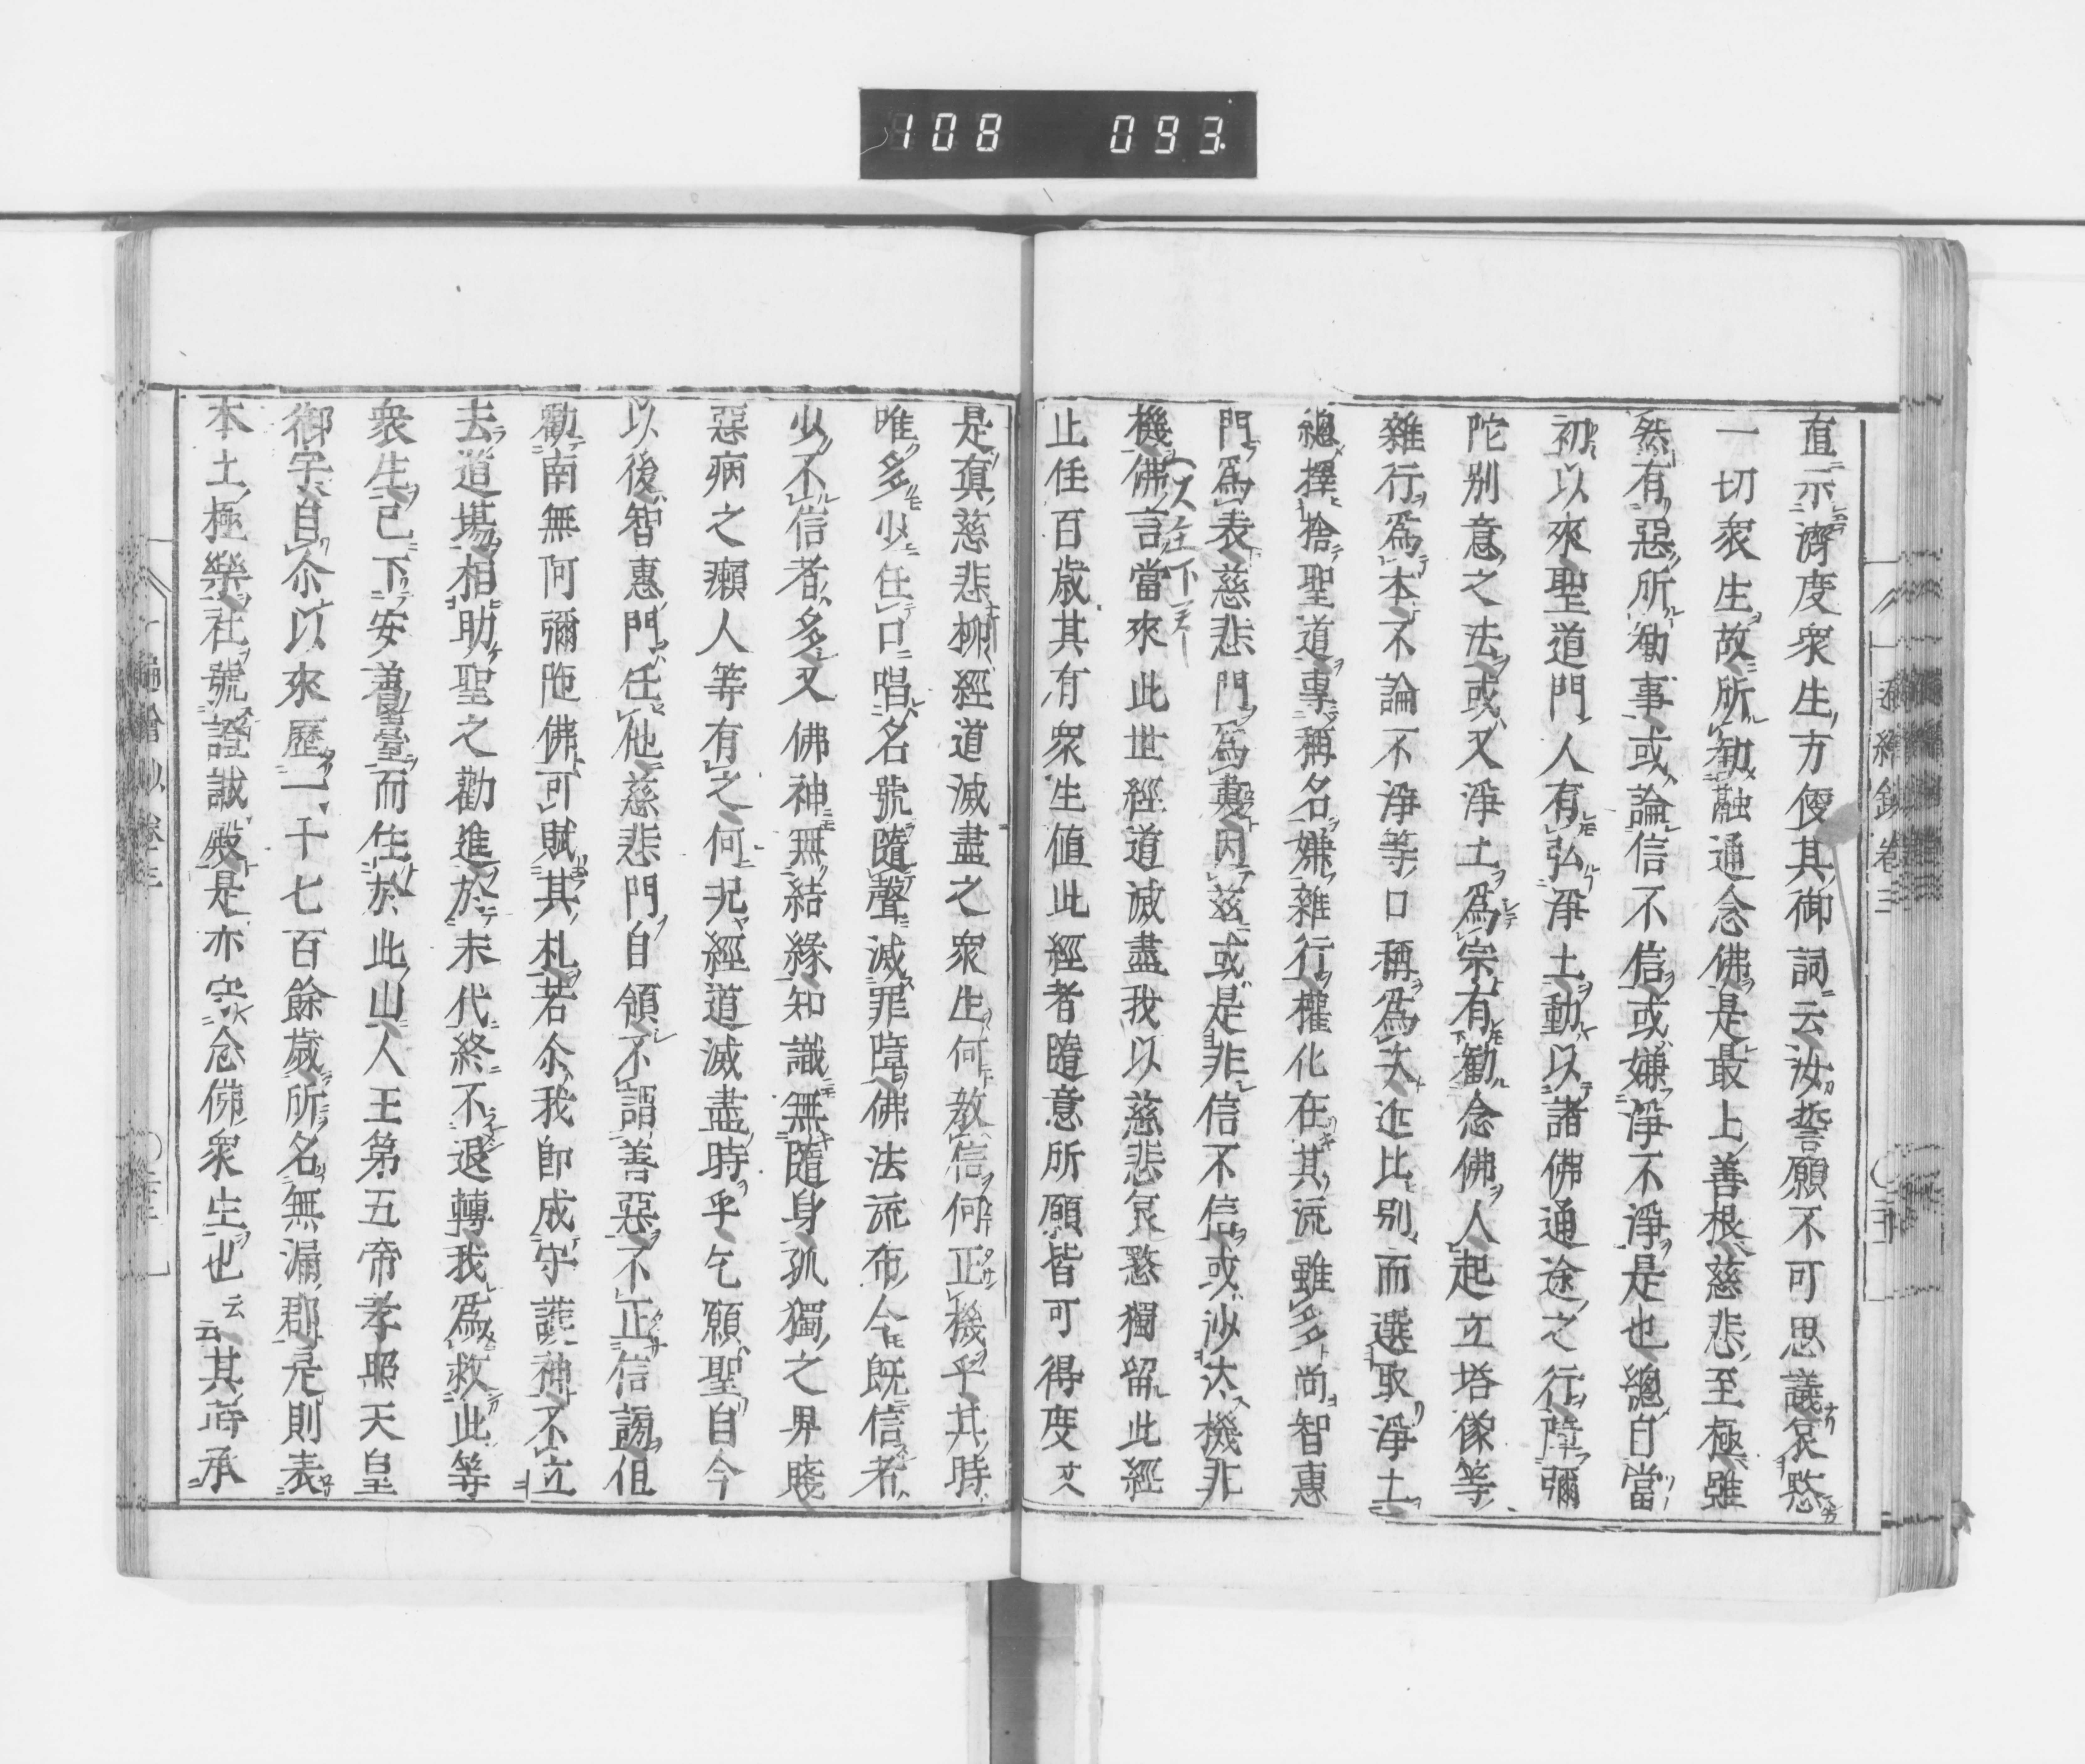 108 093
直示濟度衆生方便其御詞云汝誓願不可思議哀愍
一切衆生故所勧融通念佛是最上善根慈悲至極雖
然有惡所勧事或論信不信或嫌淨不淨是也總自當
初以來聖道門人有弘淨土動以諸佛通途之行障彌
陀別意之法或又淨土爲宗有勸念佛人起立塔像等
雜行爲本不論不淨等口稱爲次近比別而選取淨土
總擇捨聖道專稱名嫌雜行權化在其流雖多尚智惠
門爲表慈悲門爲裏因茲或是非信不信或沙汰機非
機佛言當來此世經道滅盡我以慈悲哀愍獨留此經
止住百歳其有衆生値此經者隨意所願皆可得度文
是眞慈悲柳經道滅盡之衆生何敎信何正機乎其時
唯多少任口唱名號隨聲滅罪障佛法流布今既信者
少不信者多又佛神無結緣知識無隨身孤獨之界賤
惡病之癩人等有之何况經道滅盡時乎乞願聖自今
以後智惠門任他慈悲門自領不謂善惡不正信謗但
勸南無阿彌陀佛可賦其札若尒我即成守護神不立
去道場相助聖之勸進於末代終不退轉我爲救此等
衆生己下安養臺而住於此山人王第五帝孝照天皇
御宇自尒以來歷一千七百餘歳所名無漏郡是則表
本土極樂社號證誠殿是亦守念佛衆生也云云其時承